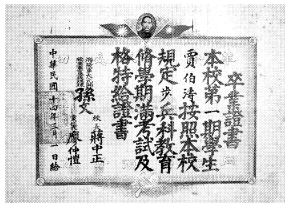 卒業證書
本校第一期學生
賈伯濤按照本校
規定步兵科教育
脩學期滿考試及
格特給證書
孫文
校長 蔣中正
黨代表 廖仲愷
中華民國十四年三月一日給